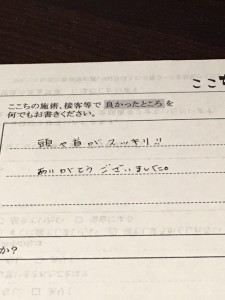 ここ
ここちの施術、接客等で良かったところを
何でもお書きください。
頭や首がスッキリ!!
ありがとうございました。
か?